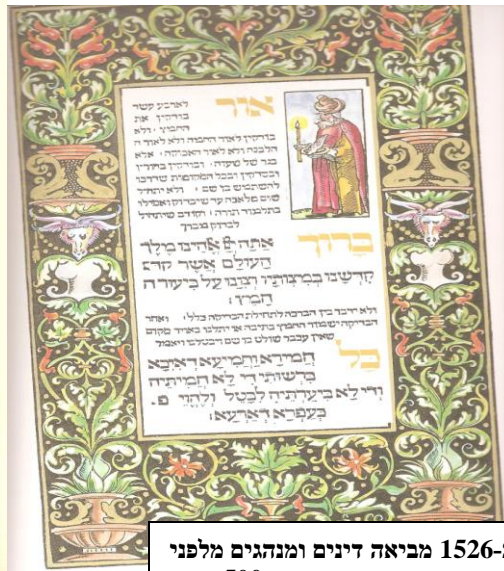 אור
לארבע עשר
בודקין את
החמץ ולא
בודקין לאור החמה ולא לאור ה
הלבנה ולא לאור האבוקה אלא
בנר של שעוה ובודקין בחורין
ובסדקין ובכל המקומות שדרכו
להשתמש בו שם ולא יתחיל
שום מלאכה עד שיבדוק ואפילו
בתלמוד תורה וקודם שיתחיל
לבדוק מברך
ברוך
אתה יי אלהינו מלך
העולם אשר קד
קדשנו במצותיו וצונו על ביעור ה
חמץ:
ולא ידבר בין הברכה לתחילת הבדיקה כלל ואחר
הבדיקה ישמור החמץ בתיבה או יתלנו באויר מקום
שאין עכבר שולט בו שם ויבטלנו ויאמר
כל
חמירא וחמיעא דאיכא
ברשותי די לא חמיתיה
ודי לא ביערתיה לבטל ולהוי פ
כעפרא דארעא:
1526 מביאה דינים ומנהגים מלפני